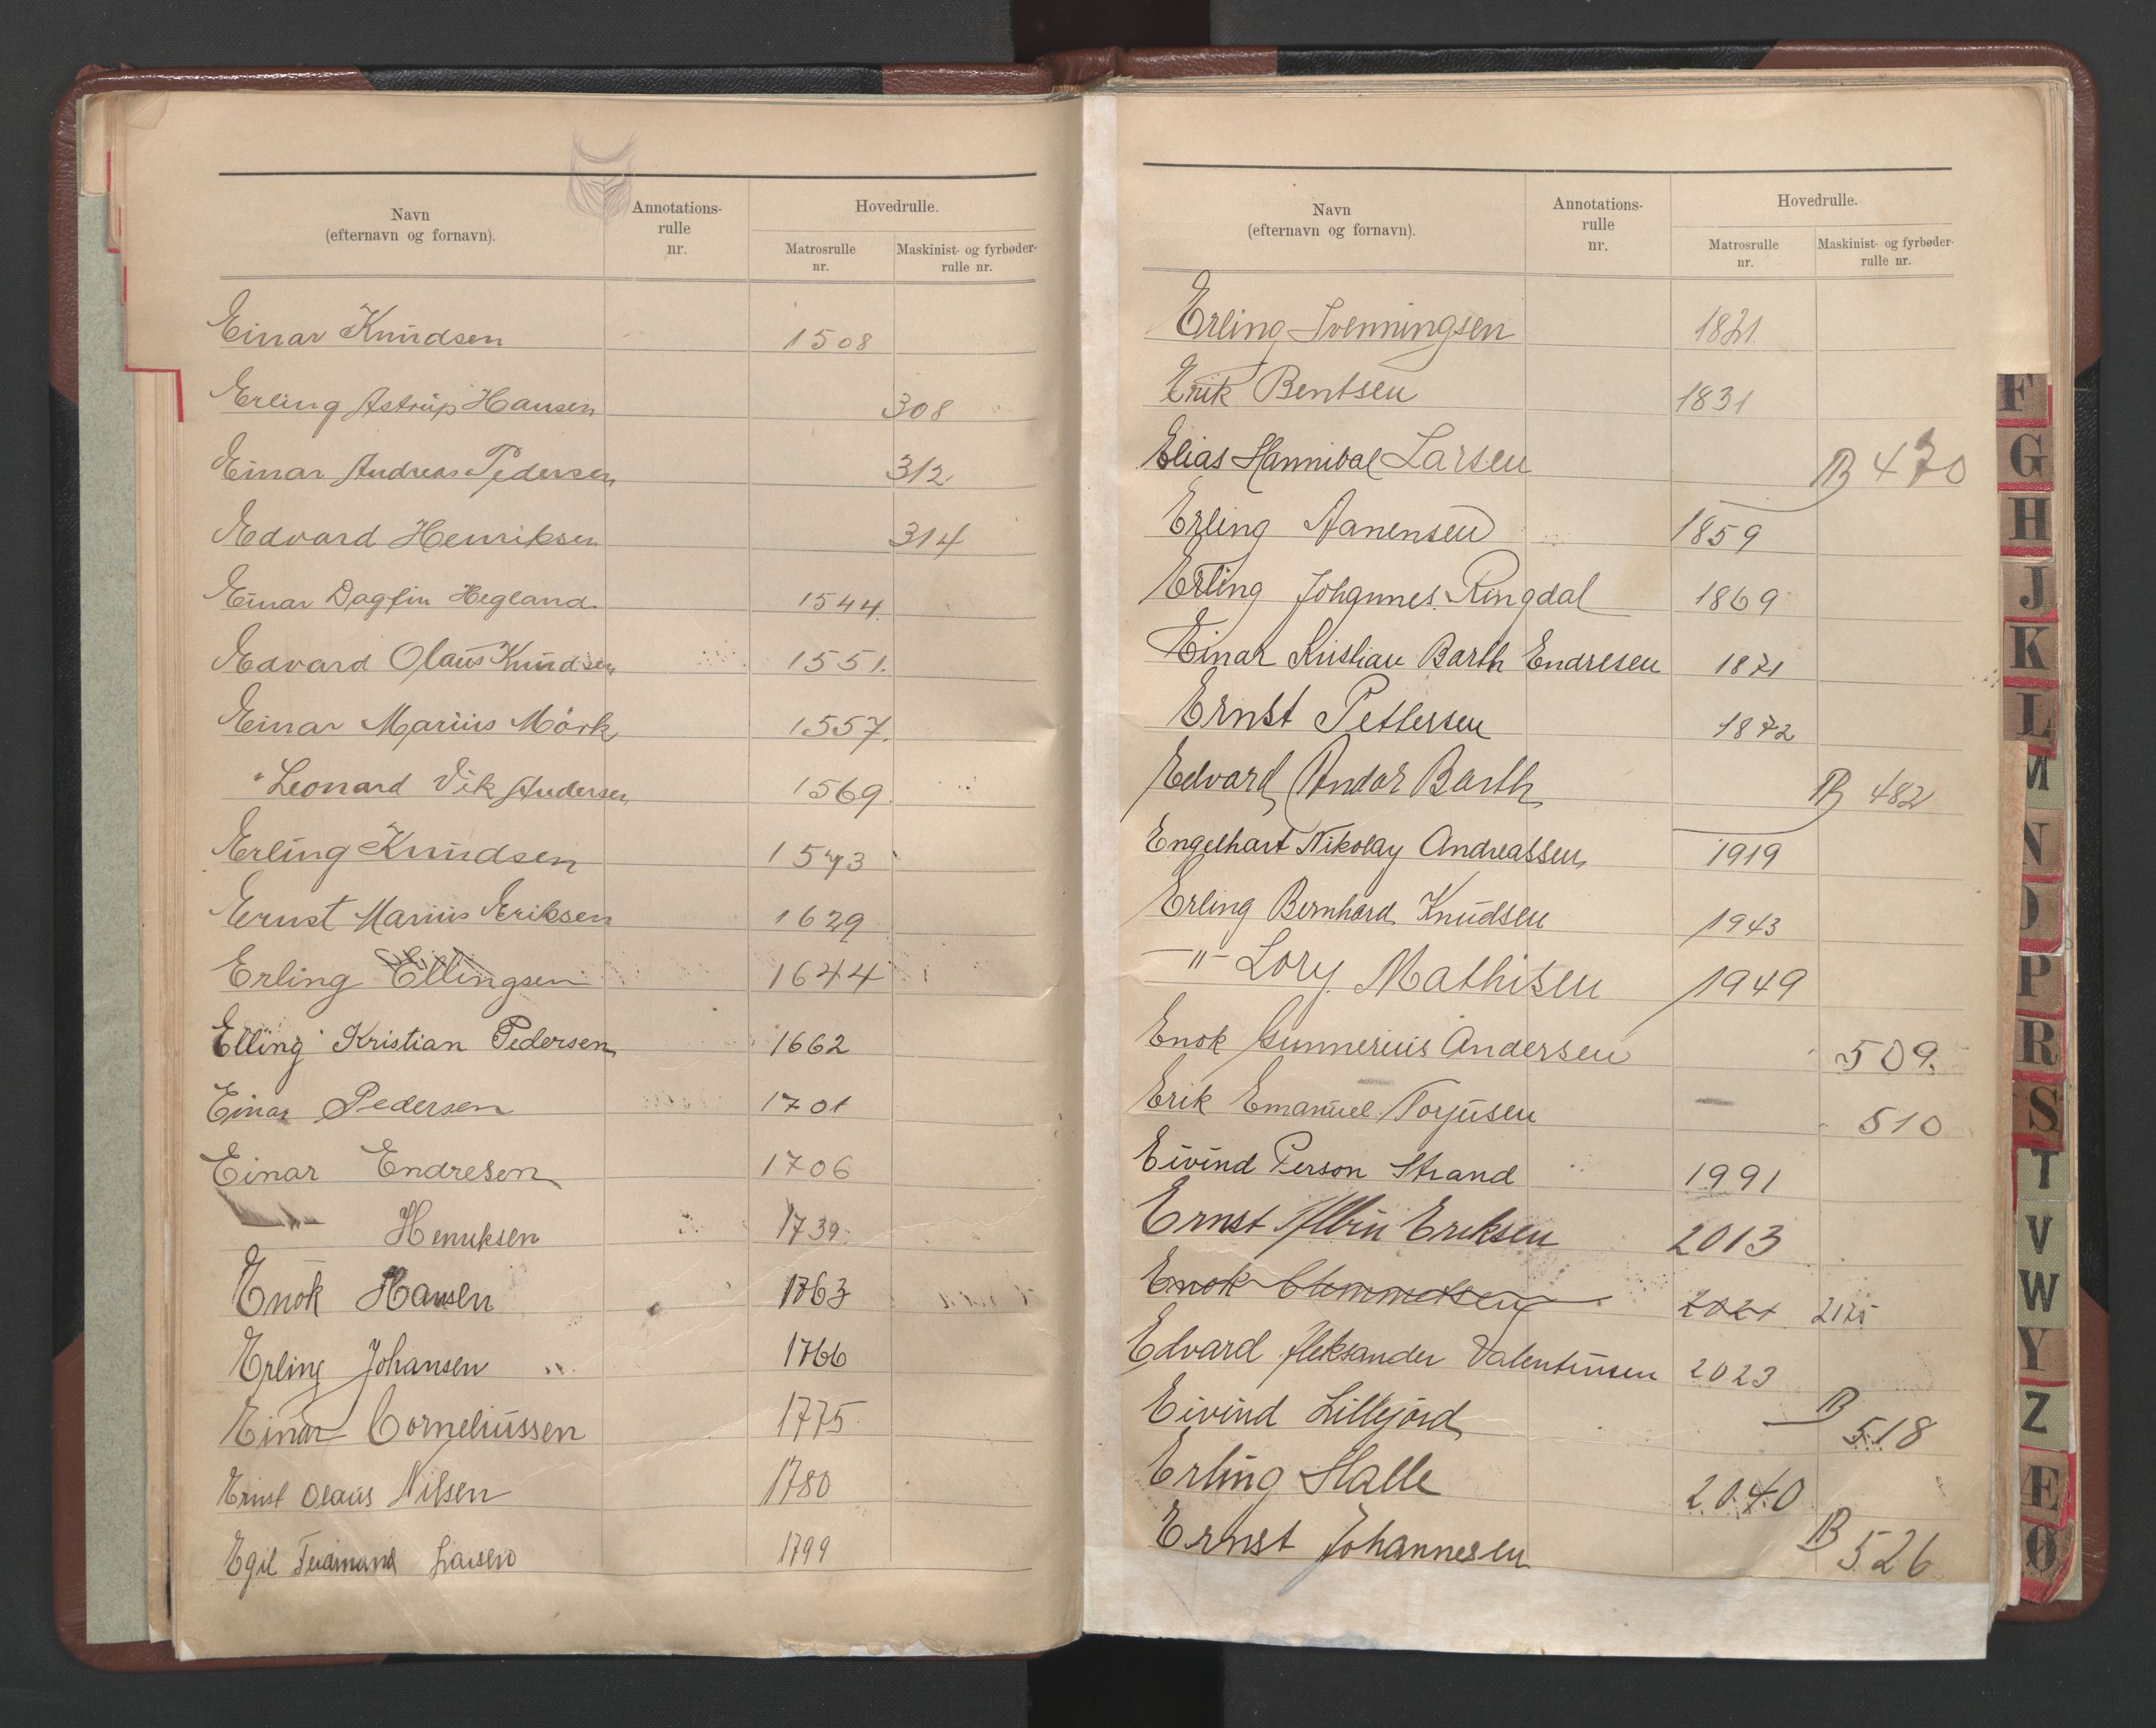 Navn
(efternavn og fornavn).
Annotations-
rulle
nr.
Hovedrulle.
Matrosrulle
nr.
Maskinist- og fyrbøder-
rulle nr.
Einar Knudsen 1508
Erling Astrup Hansen 308
Einar Andreas Pedersen 312.
Edvard Henriksen 314
Einar Dagfin Hegland. 1544.
Edvard Olaus Knudsen 1551.
Einar Marius Mörk 1557.
" Leonard Vik Andersen 1569
Erling Knudsen 1573
Ernst Marius Eriksen 1629
Erling Ellingsen 1644
Elling Kristian Pedersen 1662
Einar Pedersen 1701
Einar Endresen 1706
Henriksen 1739.
Enok Hansen 1763
Erling Johansen 1766
Einar Corneliussen 1775
Ernst Olaus Nilsen 1780
Egil Ferdinand Larsen 1799
Navn
(efternavn og fornavn).
Annotations-
rulle
nr.
Hovedrulle.
Matrosrulle
nr.
Maskinist- og fyrbøder-
rulle nr.
Erling Svenningsen 1821.
Erik Bentsen 1831
Elias Hannibal Larsen B 470
Erling Aanensen 1859
Erling Johannes Ringdal 1869
Einar Kristian Barth Endresen 1871
Ernst Pettersen 1872
Edvard Andor Barth B 482
Engelhart Nikolay Andreassen 1919
Erling Bernhard Knudsen 1943
—"— Lory Mathisen 1949
Enok Gunnerius Andersen 509.
Erik Emanuel Torjusen — 510
Eivind Person Strand 1991
Ernst Albin Eriksen 2013
Enok Clemmetsen 2021 2125
Edvard Aleksander Valentinsen 2023
Eivind Lillejord B 518
Erling Halle 2040
Ernst Johannesen B 526
F
G
H
J
K
L
M
N
O
P
R
S
T
V
W
Y
Z
Æ
Ø